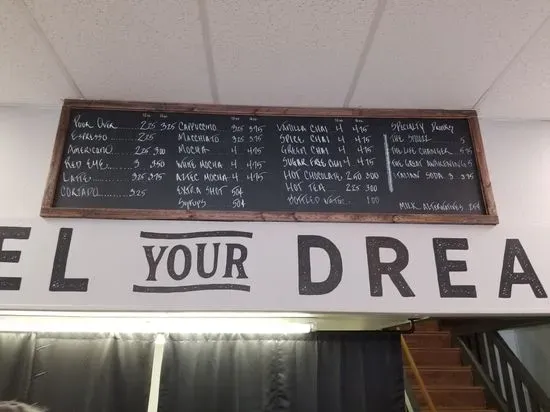 Pour Over 2.25 3.25
Espresso 2.25
Americano 2.25 3.00
Red Eye 3 3.50
Latte 3.25 3.75
Cortado 3.25
Cappuccino 3.25 3.75
Macchiato 3.25 3.75
Mocha 4 4.75
White Mocha 4 4.75
Aztec Mocha 4 4.75
Extra Shot 50¢
Syrups 50¢
Vanilla Chai 4 4.75
Spice Chai 4 4.75
Green Chai 4 4.75
Sugar Free Chai 4 4.75
Hot Chocolate 2.50 3.00
Hot Tea 2.25 3.00
Bottled Water 1.00
Specialty Drinks
The
The Life Changer 5.75
The Great Awakening 5
Italian Soda 3
Milk Alternatives
EL YOUR DREA